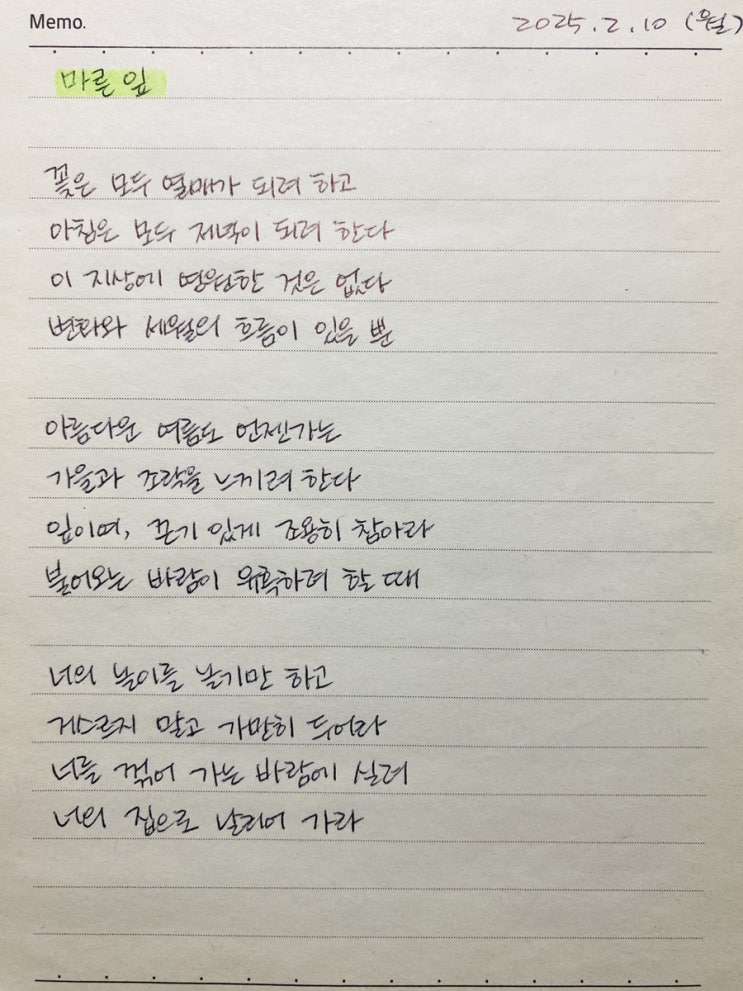 Memo.
2025.2.10 (월)
마른 잎
꽃은 모두 열매가 되려 하고
아침은 모두 저녁이 되려 한다
이 지상에 영원한 것은 없다
변화와 세월의 흐름이 있을 뿐
아름다운 여름도 언젠가는
가을과 조락을 느끼려 한다
잎이여, 끈기 있게 조용히 참아라
불어오는 바람이 유혹하려 할 때
너의 놀이를 놀기만 하고
거스르지 말고 가만히 두어라
너를 꺾어 가는 바람에 실려
너의 집으로 날리어 가라